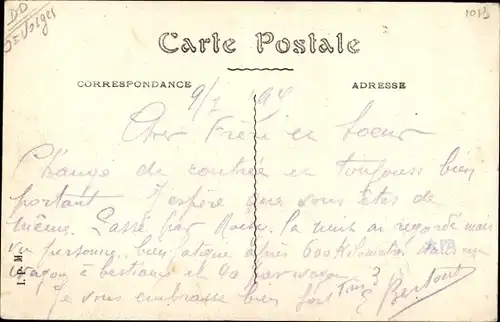 DD
Vosges
1013
Carte Postale
CORRESPONDANCE
ADRESSE
9/7
Cher Frère et Soeur
Change de contrée et toujours bien
portant J'espère que vous êtes de
même. Passé par la nuit on regardé mais
vu personne, bien fatigué après 600 Kilomètres dans un
wagon à bestiaux et 40 par wagon
Je vous embrasse bien fort
I. P. M.